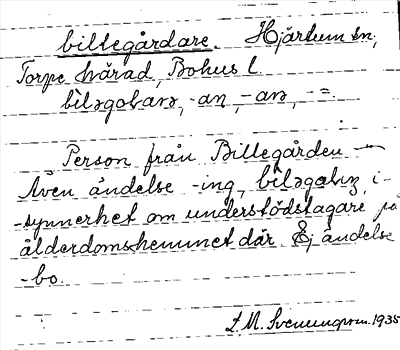 billegårdare. Hjärtum sn,
Torpe härad, Bohus l.
bìləgoḷarə, -an, -arə, -=.
Person från Billegården —
Även ändelse -ing, i-
synnerhet om understödstagare på
ålderdomshemmet där. Ej ändelse
-bo.
L. M. Svenungsson. 1935